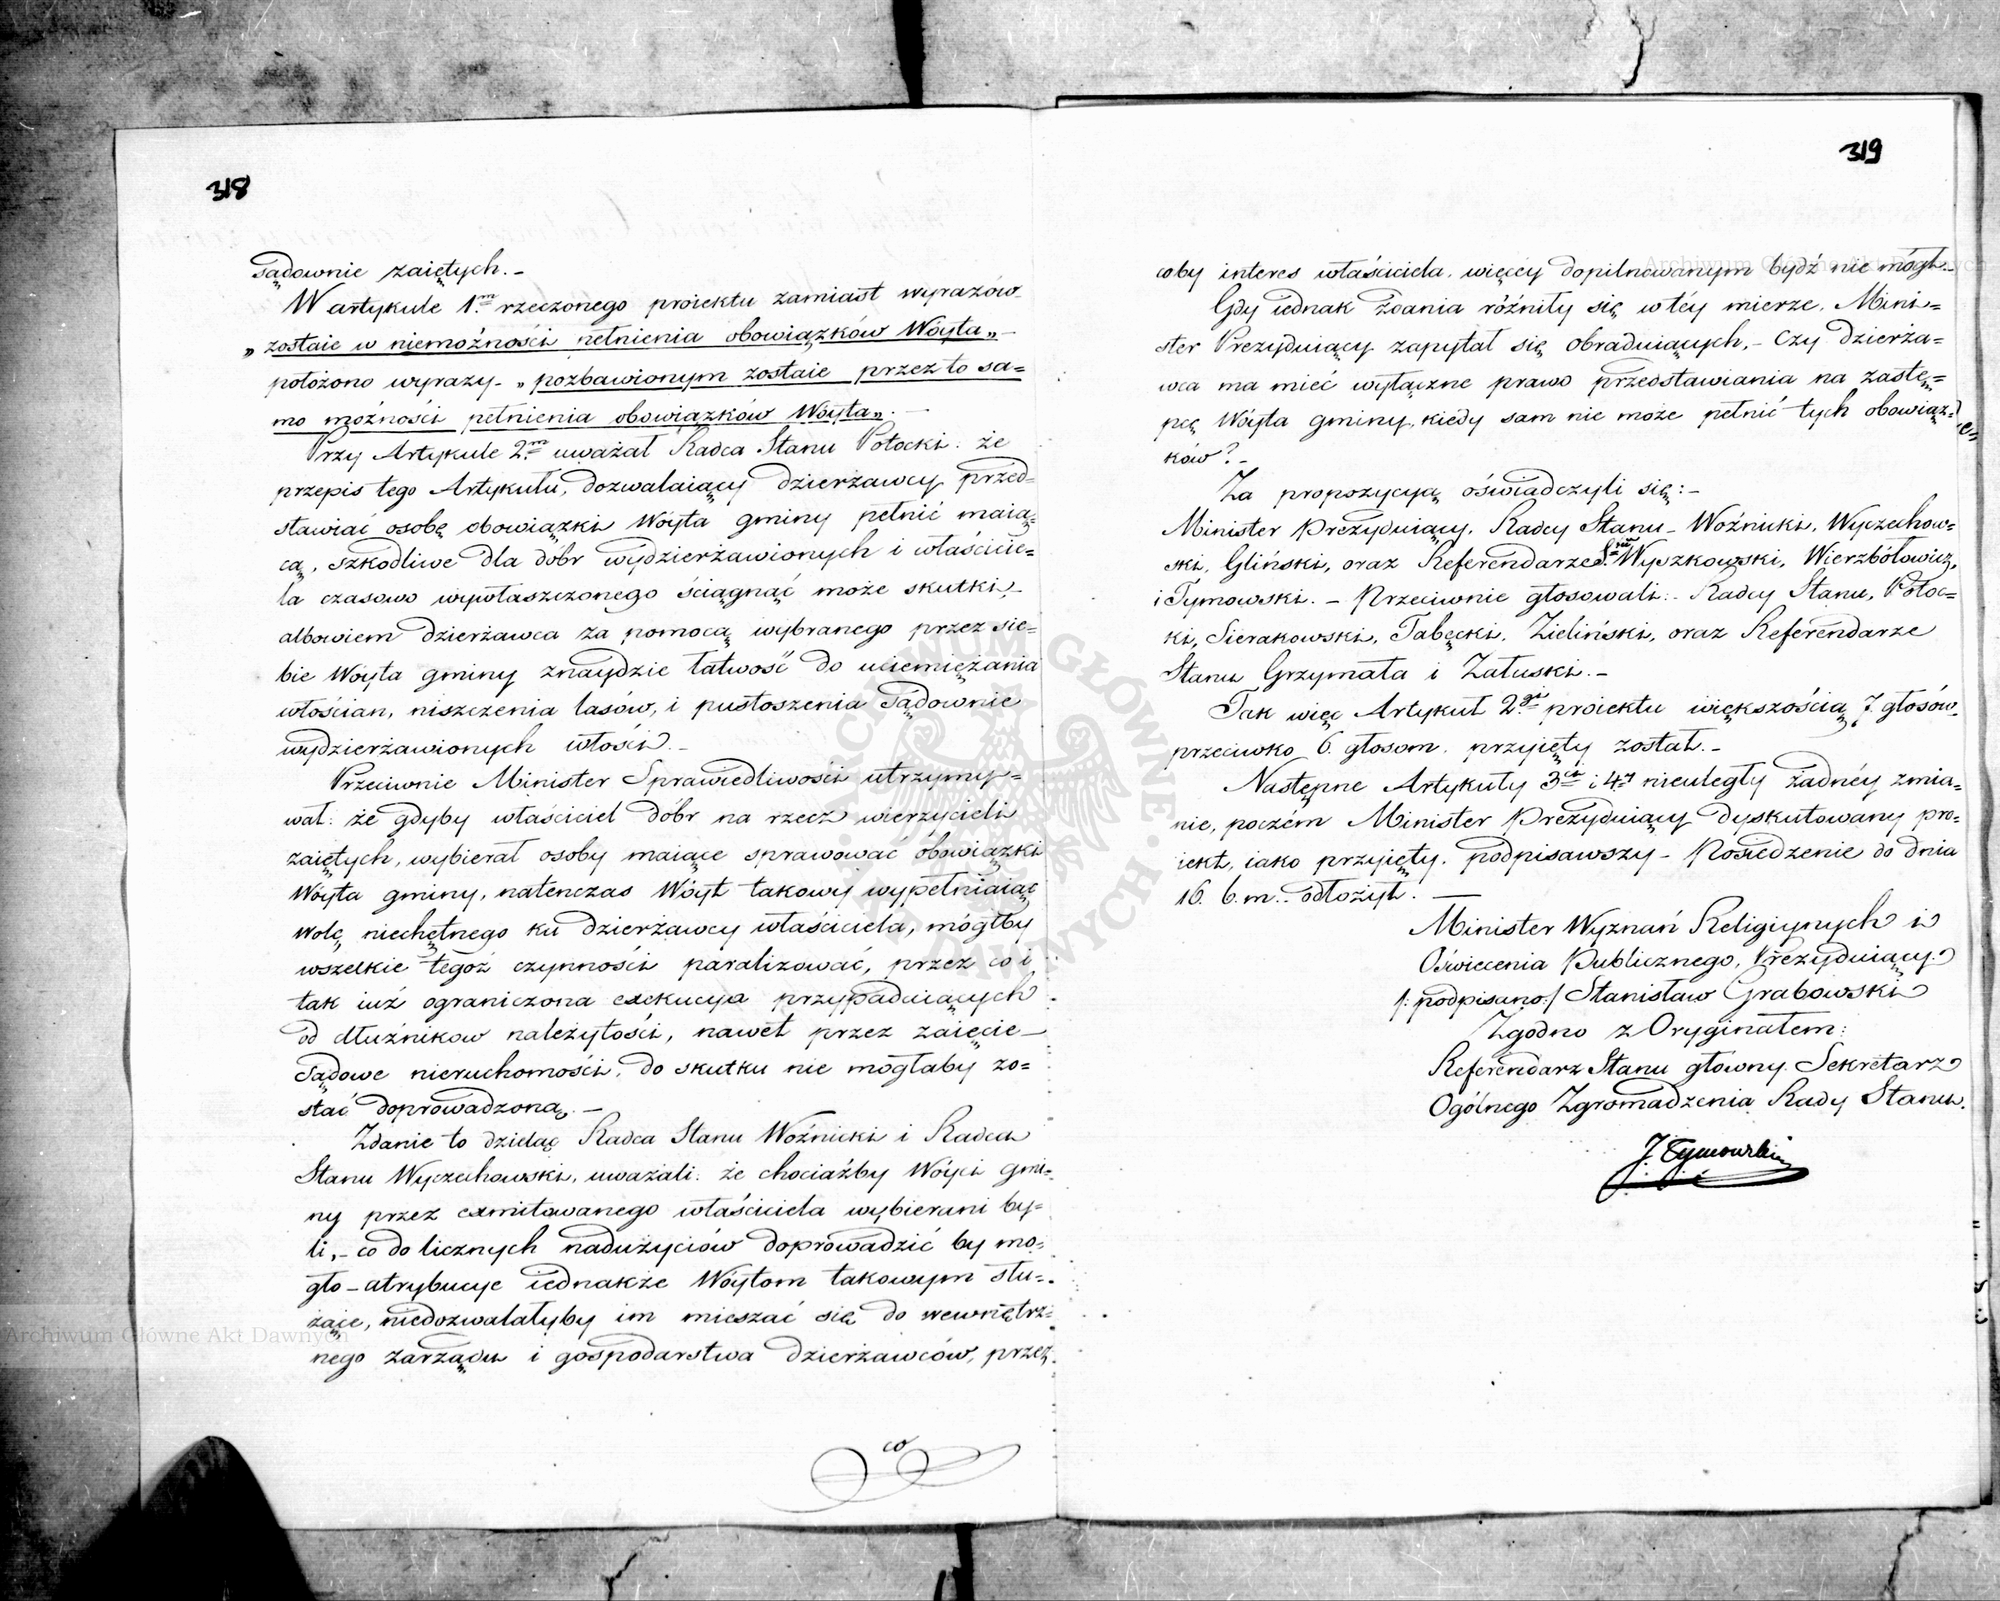 318
sądownie zaiętych. –
W artykule 1m rzeczonego proiektu zamiast wyrazów
„zostaie w niemożności pełnienia obowiązków Wóyta„ –
położono wyrazy – „pozbawionym zostaie przez to sa=
mo możności pełnienia obowiązków Wóyta„. –
Przy Artykule 2m uważał Radca Stanu Potocki: że
przepis tego Artykułu, dozwalaiący dzierżawcy przed=
stawiać osobę obowiązki Wóyta gminy pełnić maią=
cą, szkodliwe dla dóbr wydzierżawionych i właścicie=
la czasowo wywłaszczonego ściągnąć może skutki, –
albowiem dzierżawca za pomocą wybranego przez sie=
bie Wóyta gminy znaydzie łatwość do uciemiężania
włościan, niszczenia lasów, i pustoszenia sądownie
wydzierżawionych włości. –
Przeciwnie Minister Sprawiedliwości utrzymy=
wał: że gdyby właściciel dóbr na rzecz wierzycieli
zaiętych, wybierał osoby maiące sprawować obowiązki
Wóyta gminy, natenczas Wóyt takowy wypełniaiąc
wolę niechętnego ku dzierżawcy właściciela, mógłby
wszelkie tegoż czynności paraliżować, przez co i
tak iuż ograniczona exekucya przypadaiących
od dłużnikow należytości, nawet przez zaięcie –
Sądowe nieruchomości, do skutku nie mogłaby zo=
stać doprowadzoną. –
Zdanie to dzieląc Radca Stanu Woźnicki i Radca
Stanu Wyczechowski, uważali: że chociażby Wóyci gmi=
ny przez exmitowanego właściciela wybierani by=
li, – co do licznych nadużyciów doprowadzić by mo=
gło – atrybucye iednakże Wóytom takowym słu=
żące, niedozwalałyby im mieszać się do wewnętrz=
nego zarządu i gospodarstwa dzierżawców, przez
co
319
coby interes właściciela, więcéy dopilnowanym bydź nie mógł. –
Gdy iednak zdania różniły się w téy mierze, Mini=
ster Prezyduiący zapytał się obraduiących, – Czy dzierża=
wca ma mieć wyłączne prawo przedstawiania na zastę=
pcę Wóyta gminy, kiedy sam nie może pełnić tych obowiąz=
ków? –
Za propozycyą oświadczyli się: –
Minister Prezyduiący, Radcy Stanu – Woźnicki, Wyczechow=
ski, Gliński, oraz Referendarze Wyszkowski, Wierzbołowicz,
i Tymowski. – Przeciwnie głosowali: – Radcy Stanu, Potoc=
ki, Sierakowski, Tabęcki, Zieliński, oraz Referendarze
Stanu Grzymała i Załuski. –
Tak więc Artykuł 2gi proiektu większością 7 głosów
przeciwko 6. głosom, przyięty został. –
Następne Artykuły 3ci i 4y nieuległy żadnéy zmia=
nie, poczém Minister Prezyduiący dyskutowany pro=
iekt, iako przyięty, podpisawszy – Posiedzenie do dnia
16. b. m. odłożył. –
Minister Wyznań Religiynych i
Oświecenia Publicznego, Prezyduiący
/: podpisano :/ Stanisław Grabowski
Zgodno z Oryginałem:
Referendarz Stanu główny Sekretarz
Ogólnego Zgromadzenia Rady Stanu.
J. Tymowski
Archiwum Główne Akt Dawnych
Archiwum Główne Akt Dawnych
ARCHIWUM GŁÓWNE AKT DAWNYCH